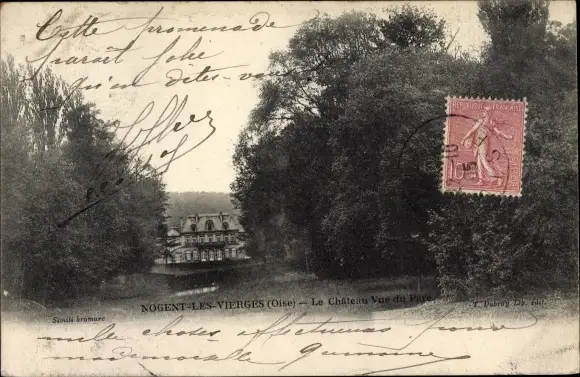 Cette promenade
parait jolie
qu'en dites-vous
REPUBLIQUE FRANCAISE
10
NOGENT-LES-VIERGES (Oise) - Le Château Vue du Parc
Simili bromure
T. Dubray Lib. édit.
mille choses affectueuses pour
mademoiselle Germaine